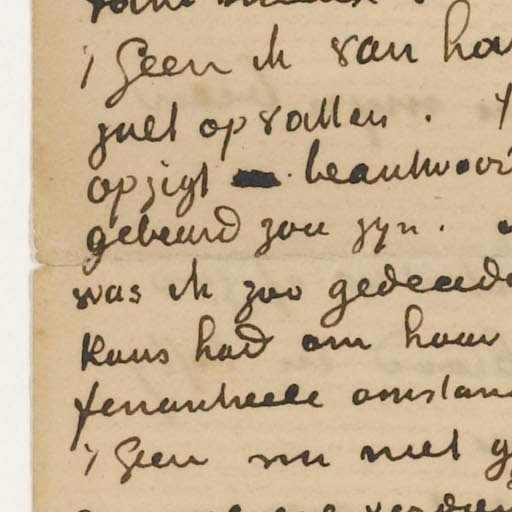 't Geen ik van haa
zult opvatten. 't
opzigt beantwoor
gebeurd zou zyn.
was ik zoo gedecide
Kans had om haar
fenantieele omstan
't Geen nu niet g